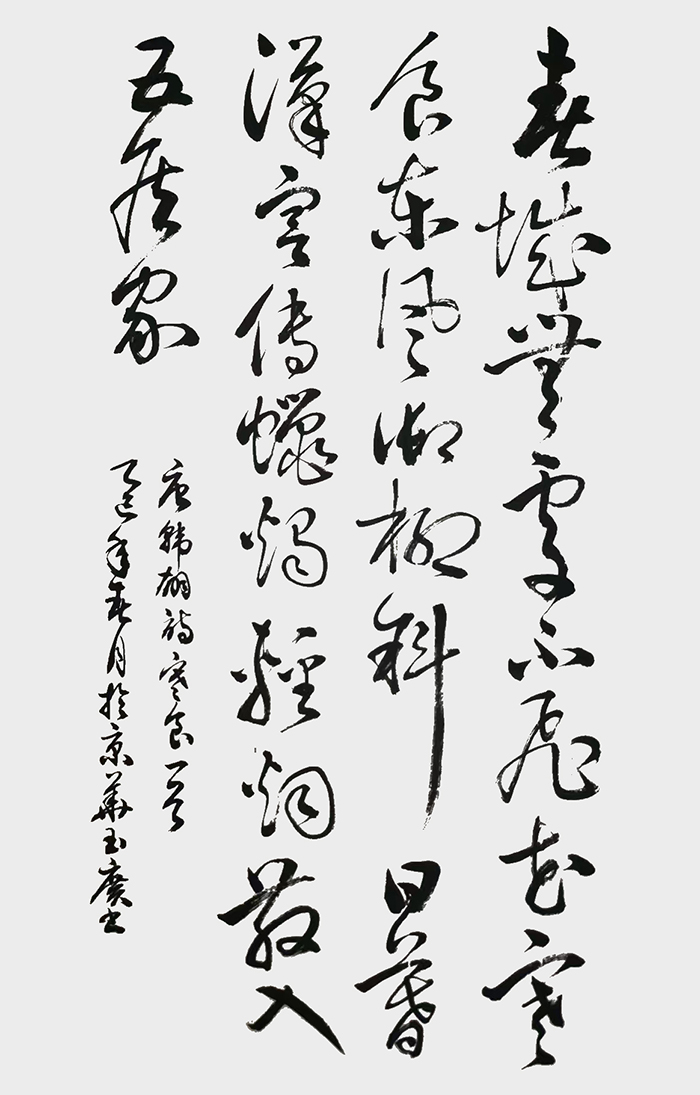 春城無處不飛花寒
食東風御柳斜日暮
漢宮傳蠟燭輕烟散入
五侯家
唐韓翃詩寒食一首
乙巳年春月於京華玉廣書